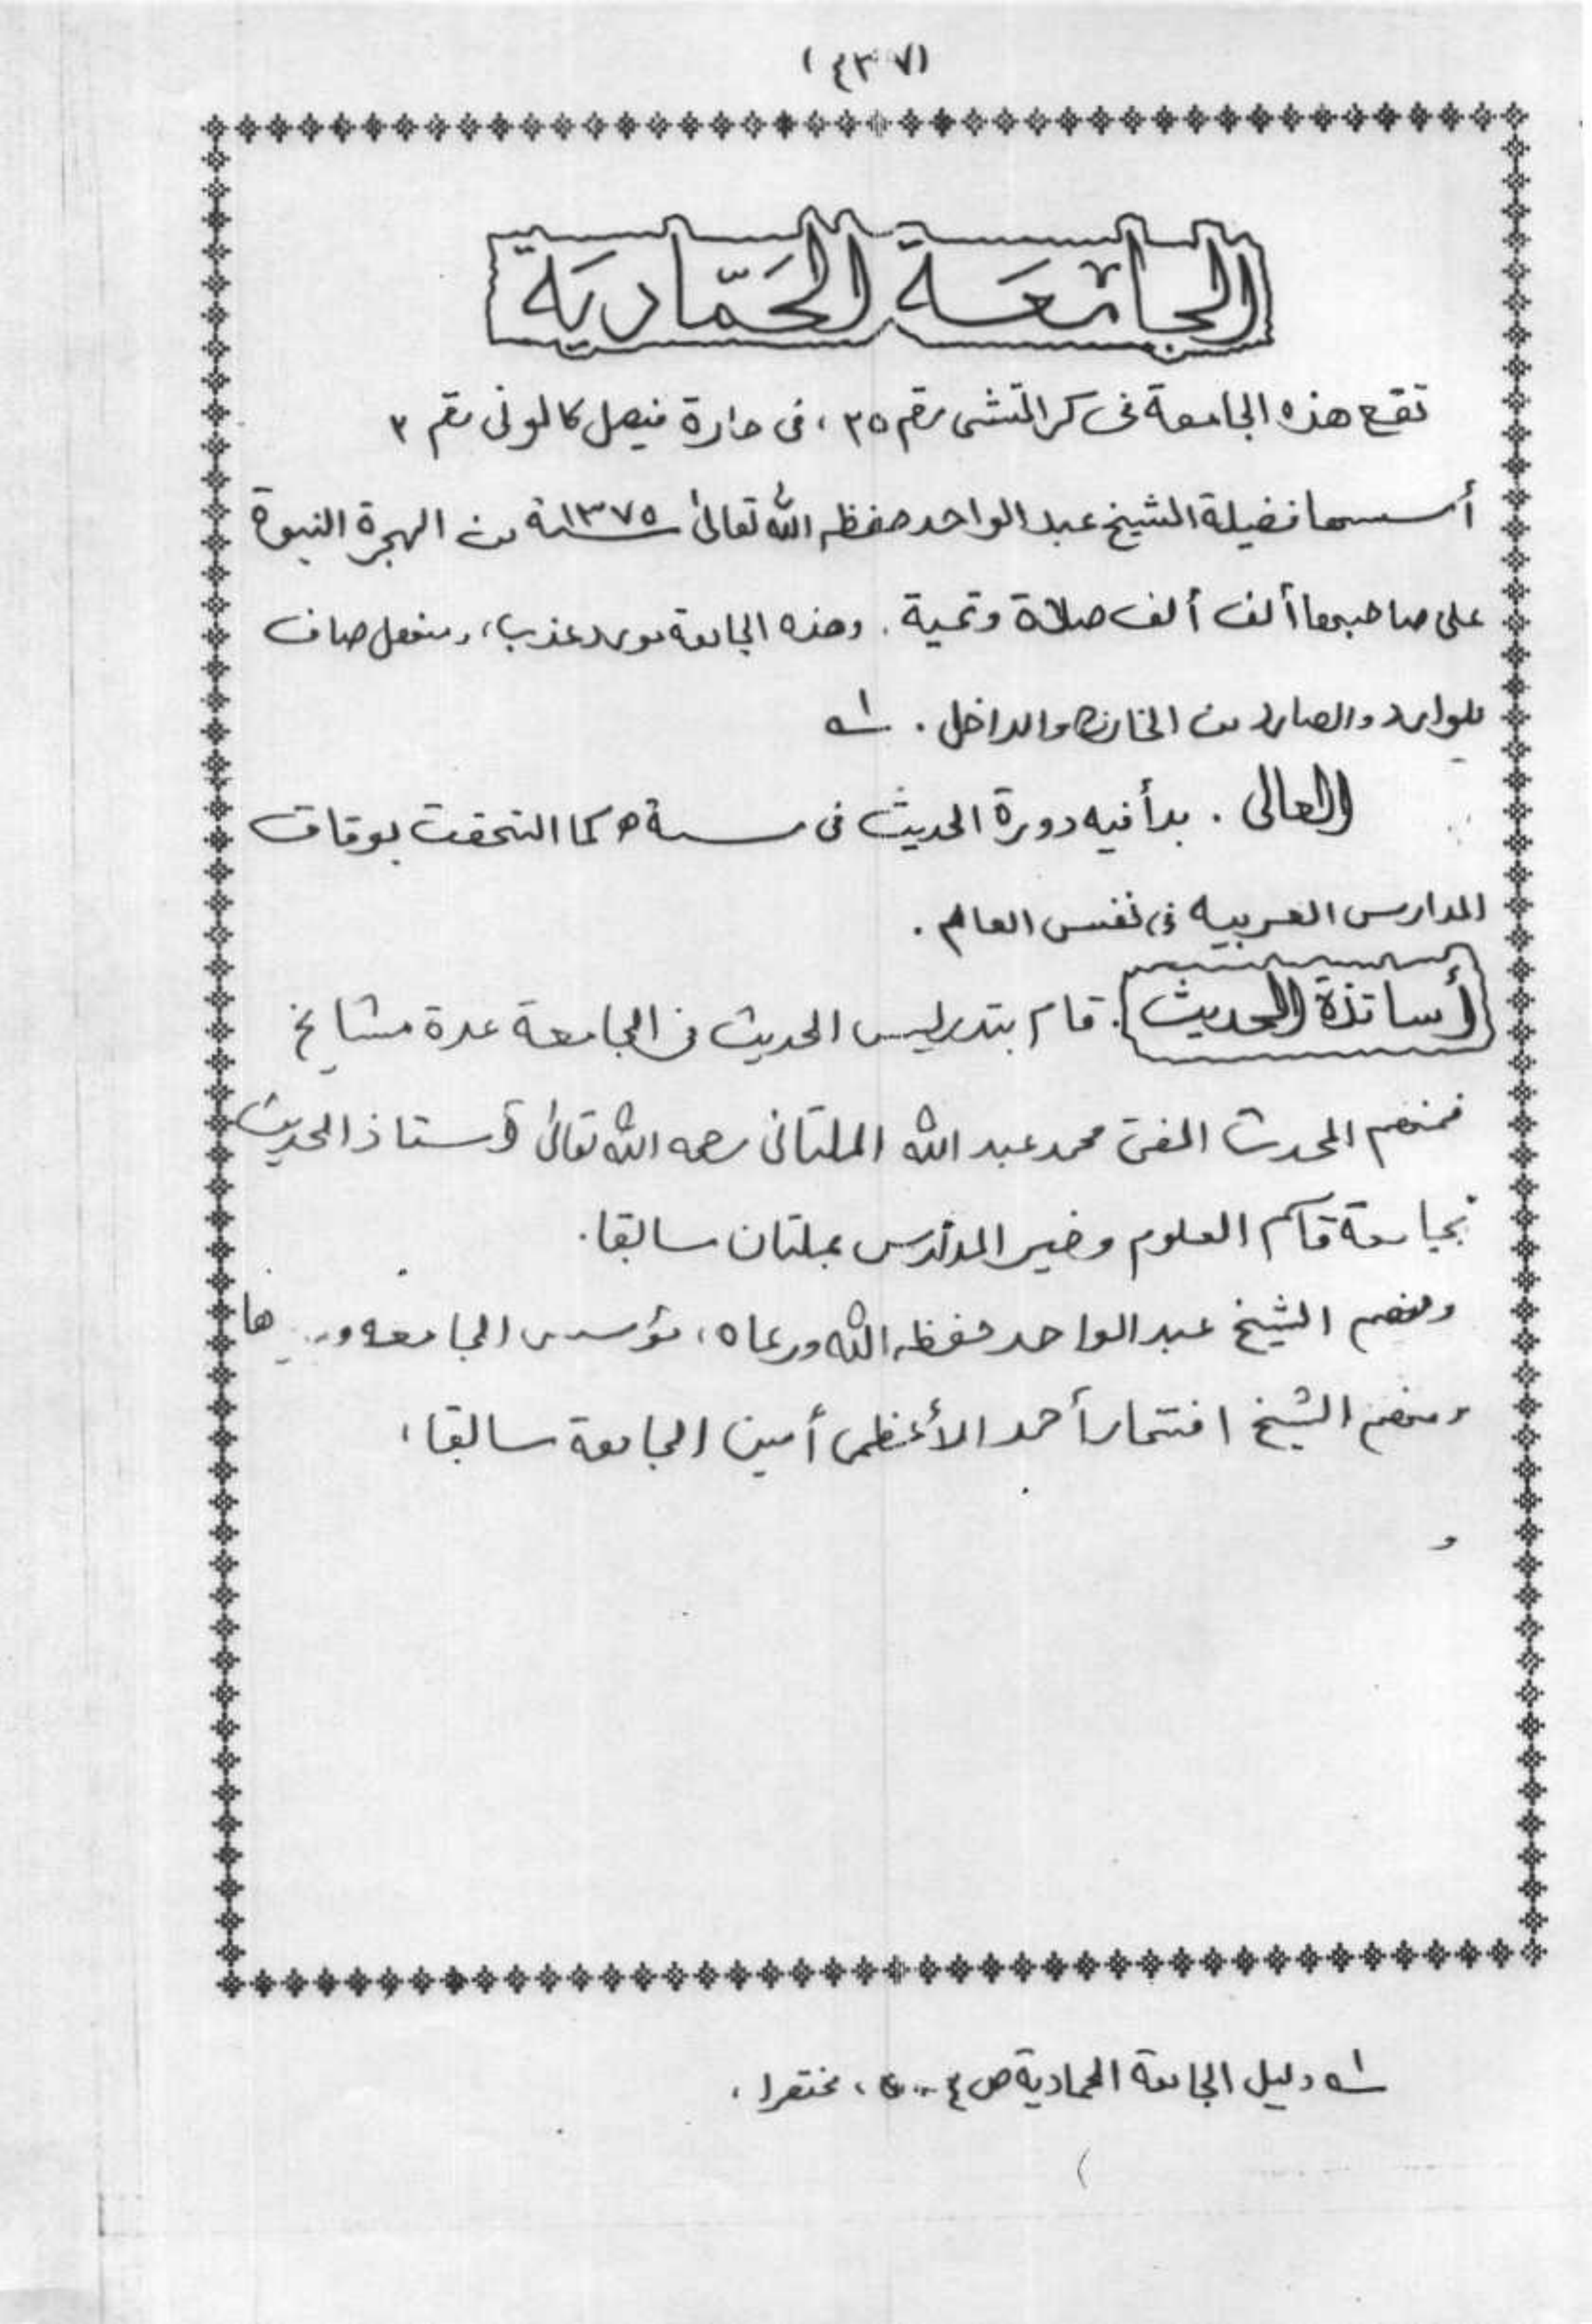 (٤٣٧)
الجامعة الحَمّاديَة
تقع هذه الجامعة فى كراتشى رقم ٢٥، فى حارة فيصل كالونى رقم ٣
أسسها فضيلة الشيخ عبد الواحد حفظه الله تعالىٰ ١٣٧٥سنة من الهجرة النبوة
على صاحبها ألف ألف صلاة وتحية. وهذه الجامعة مورد عذب، ومنهل صاف
للوارد والصادر من الخارج والداخل. ١ـه
العالى. بدأ فيه دورة الحديث فى سنة ه كما التحقت بوفاق
المدارس العربيه فى نفس العام.
أساتذة الحديث. قام بتدريس الحديث فى الجامعة عدة مشايخ
فمنهم المحدث المفتى محمد عبد الله الملتانى رحمه الله تعالىٰ أستاذ الحديث
بجامعة قاسم العلوم وخير المدارس بملتان سابقا.
ومنهم الشيخ عبد الواحد حفظه الله ورعاه، مؤسس الجامعه و
ومنهم الشيخ افتخار أحمد الأعظمى أمين الجامعة سابقا،
و
١ـه دليل الجامعة الحمادية ص ٤، مختصرا،